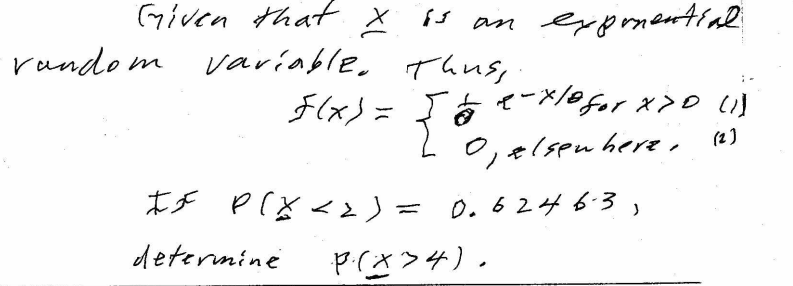 Given that X is an exponential
random variable. Thus,
f(x) = { 1/θ e^-x/θ for x>0 (1)
0, elsewhere. (2)
If P(X <2) = 0.62463,
determine P(X>4).